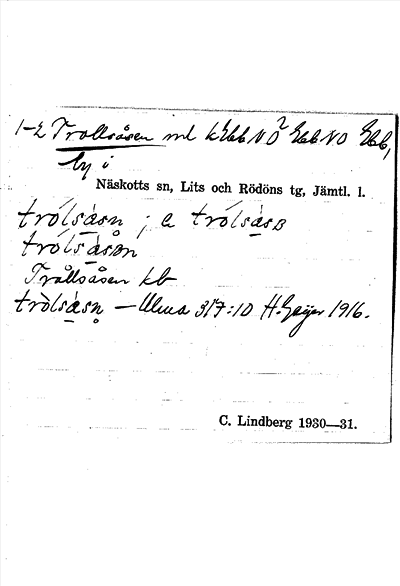 1-2 Trollsåsen ml k Ebb NO² Ebb NO Ebb,
by i
Näskotts sn, Lits och Rödöns tg, Jämtl. l.
trólsàsn ; a trólsàsɒ
trólsàsn
Trållsåsen kb
tròlsàsn — Ulma 317:10 H. Geijer 1916.
C. Lindberg 1930—31.